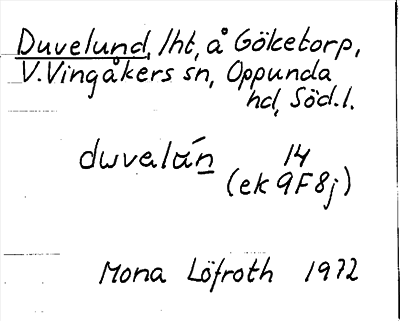 Duvelund, lht, å Göketorp,
V. Vingåkers sn, Oppunda
hd, Söd.l.
duvalún 14
(ek 9F8j)
Mona Löfroth 1972